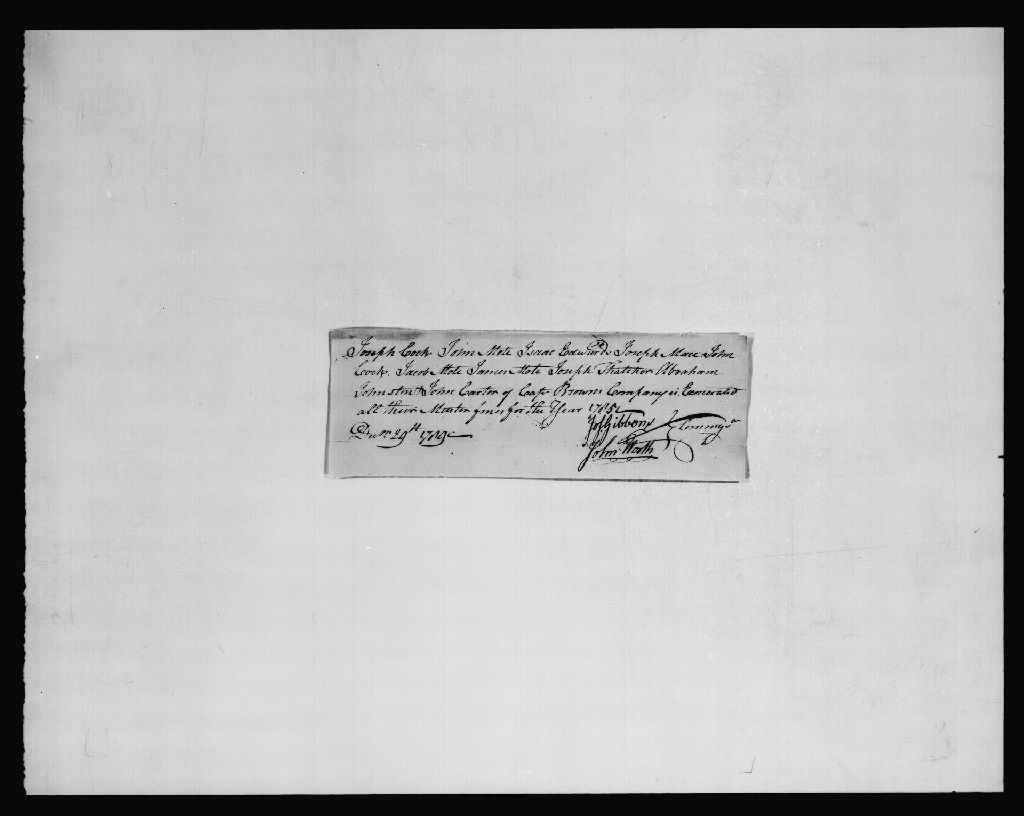 Joseph Cock John Mote Isaac Edwards Joseph Mace John
Cock. Jacob Mote James Mote Joseph Thatcher Abraham
Johnston & John Carter of Capt Browns Company is Exonerated
all their Muster fines for the Year 1785
Jos Gibbons
Decr 29th 1789
John Worth